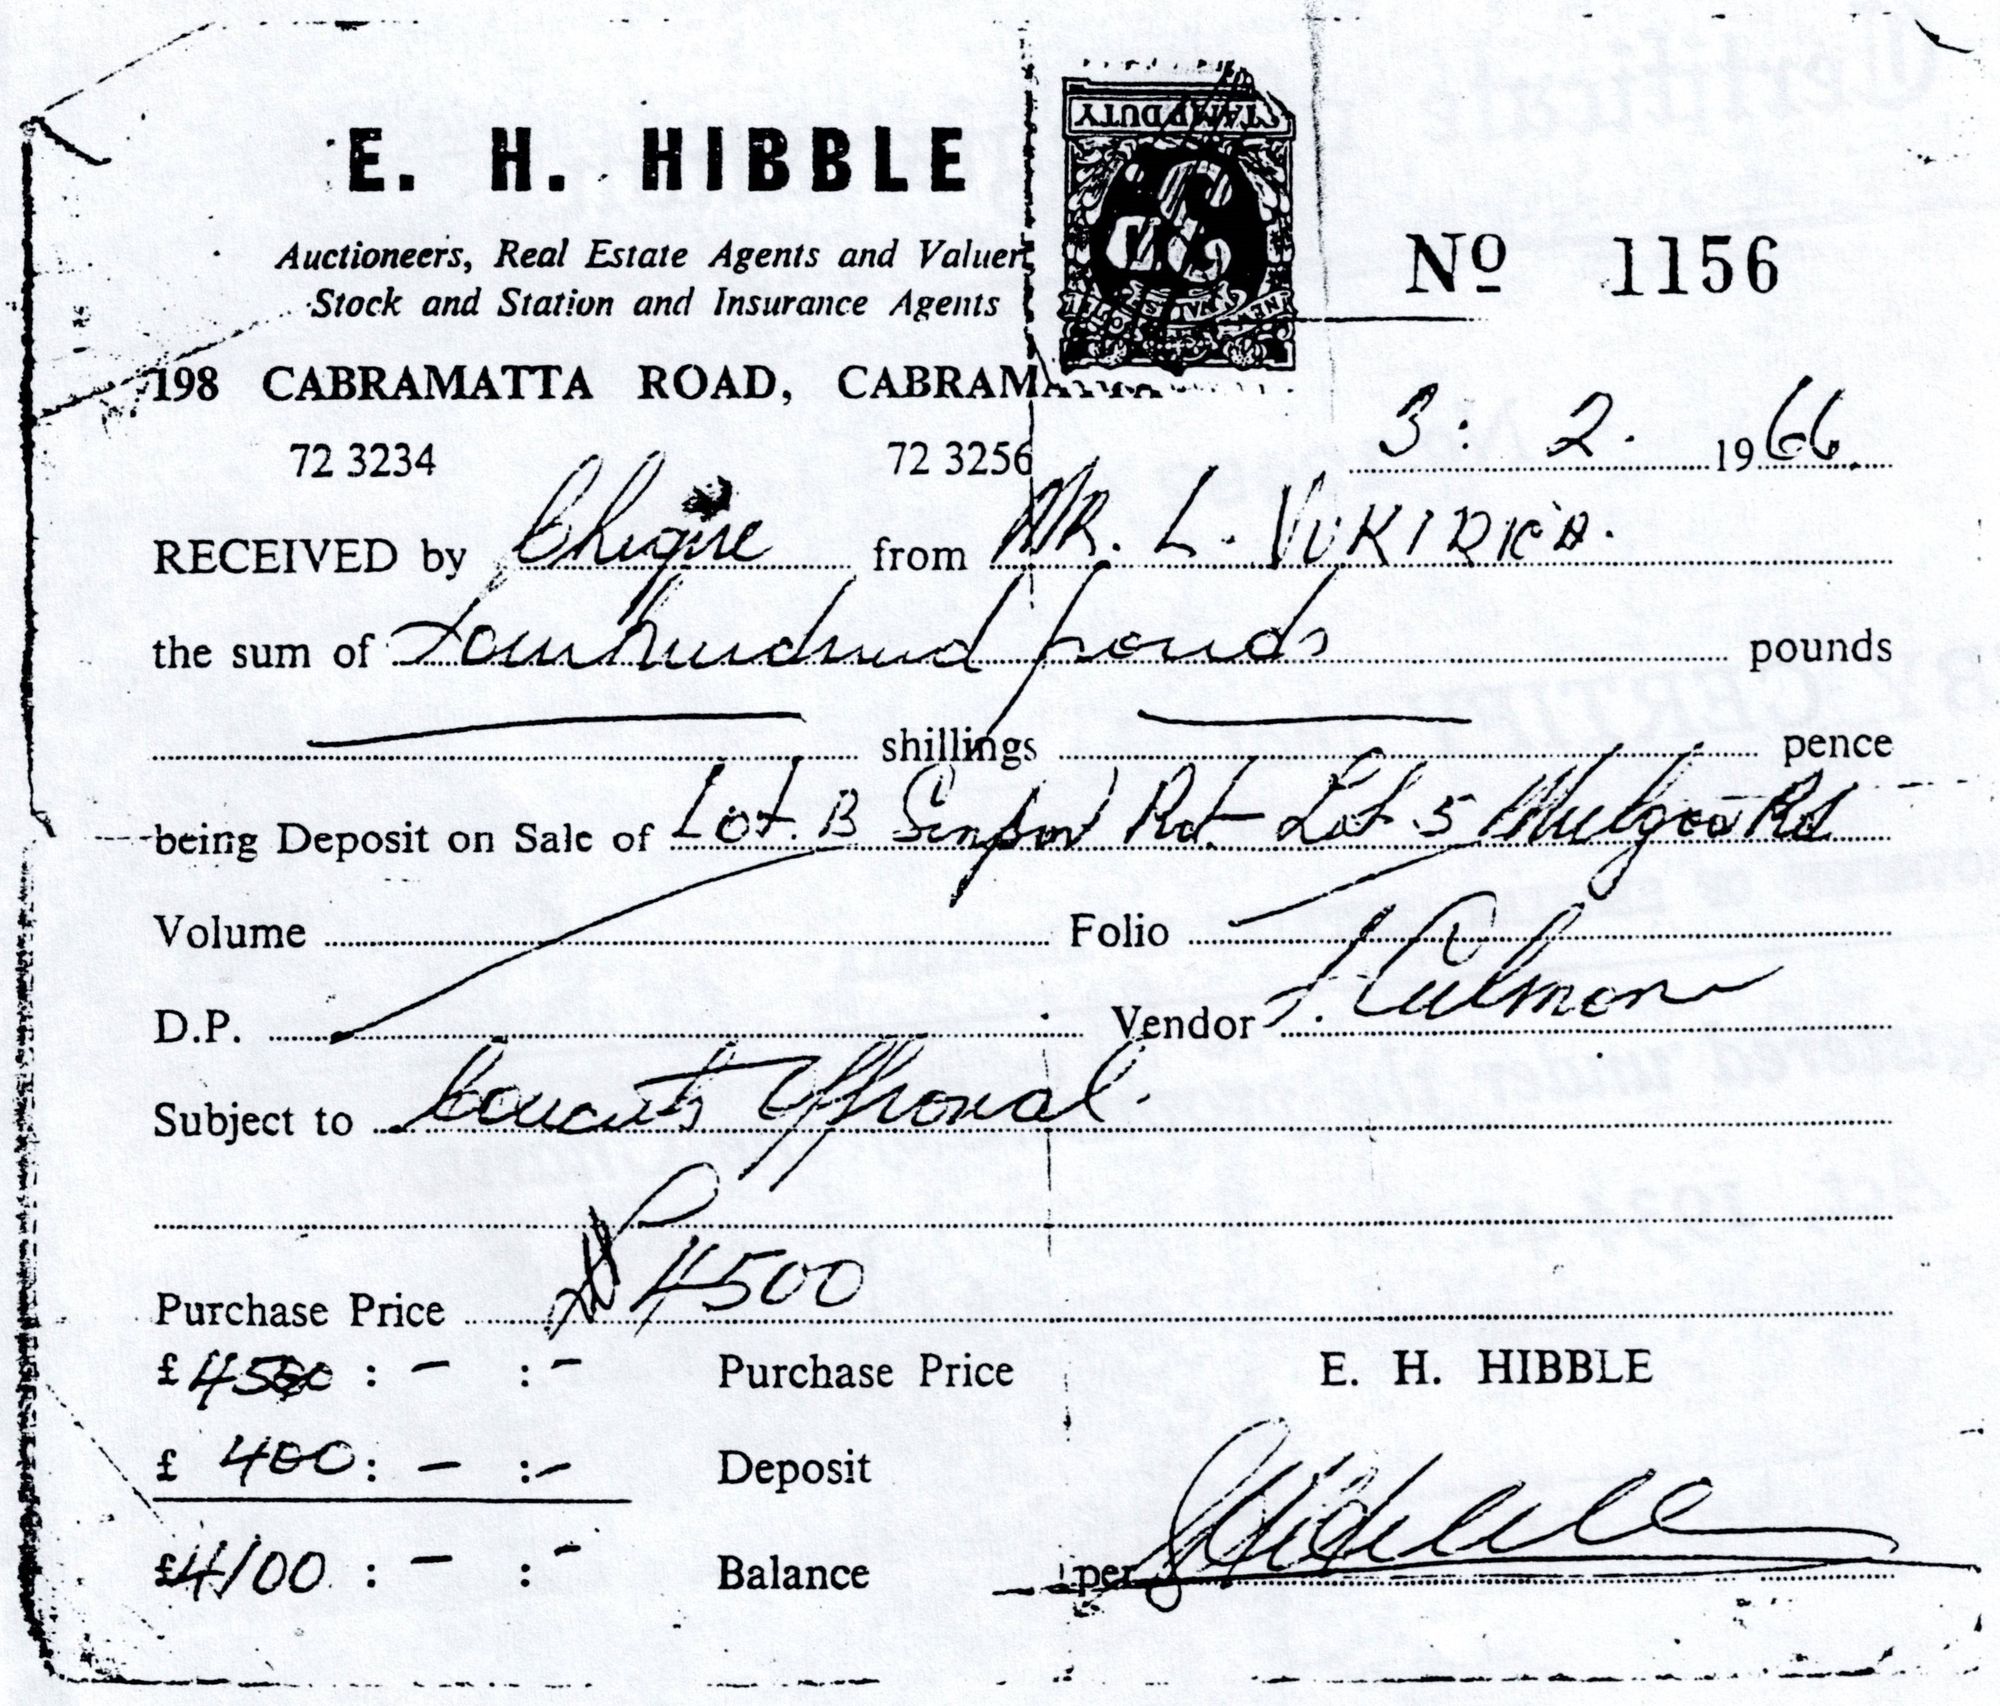 E. H. HIBBLE
STAMP DUTY
Auctioneers, Real Estate Agents and Valuer
Stock and Station and Insurance Agents
Nº 1156
198 CABRAMATTA ROAD, CABRAMATTA
72 3234 72 3256
3 : 2 . 1966.
RECEIVED by Cheque from MR. L. VUKIRICA.
the sum of Four hundred pounds pounds
shillings pence
being Deposit on Sale of Lot. B Rd. Lot 5 Mulgoa Rd
Volume Folio
D.P. Vendor Culmone
Subject to Councils Approval.
Purchase Price £4500
£4500 : - : - Purchase Price E. H. HIBBLE
£ 400 : - : - Deposit
£4100 : - : - Balance per